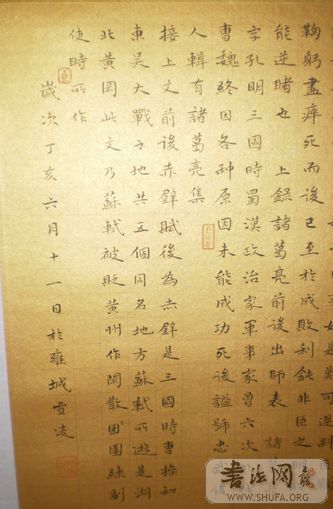 可逆料
鞠躬盡瘁死而後已至於成敗利鈍非臣之
能逆睹也 上錄諸葛亮前後出師表 諸
字孔明三國時蜀漢政治家軍事家曾六次
曹魏終因各种原因未能成功死後謚號忠
人輯有諸葛亮集
接上文前後赤壁賦後為赤壁是三國時曹操和
東吳大戰之地共五個同名地方蘇軾所遊是湖
北黃岡此文乃蘇軾被貶黃州作閑散團練副
使時所作
歲次丁亥六月十一日於雍城雪凌
書法网
WWW.SHUFA.ORG